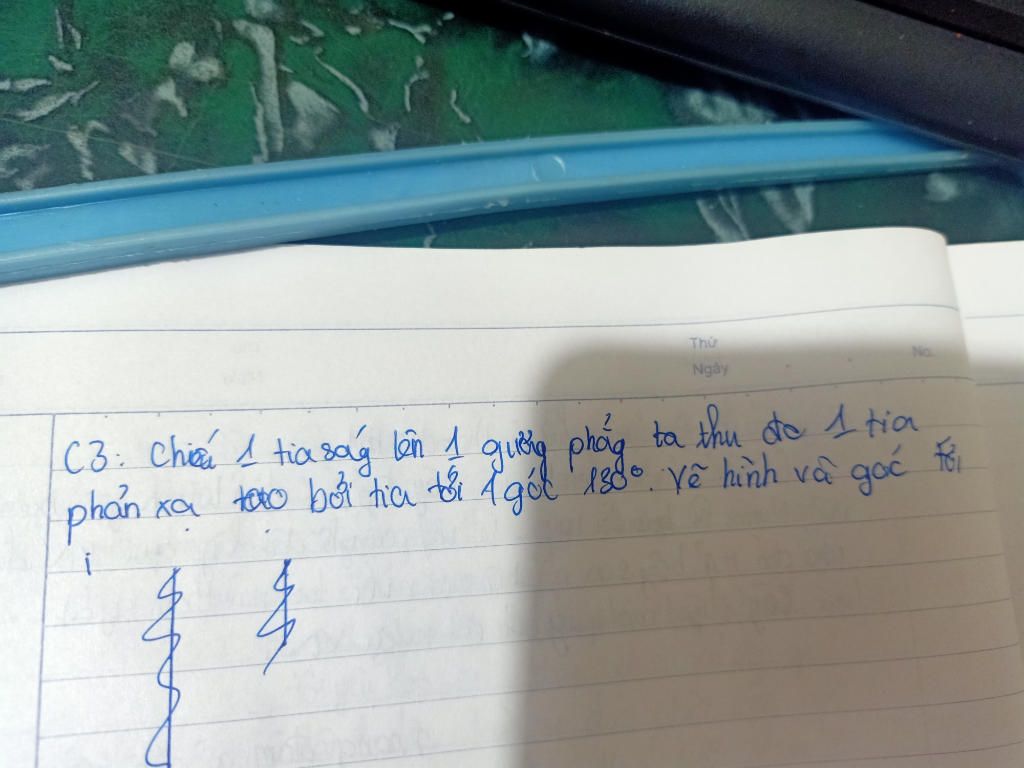 Thứ
Ngày
No.
C3: Chiếu 1 tia ság lên 1 gươg phẳg ta thu đc 1 tia
phản xạ tạo bởi tia tới 1 góc 130°. Vẽ hình và góc tới
i